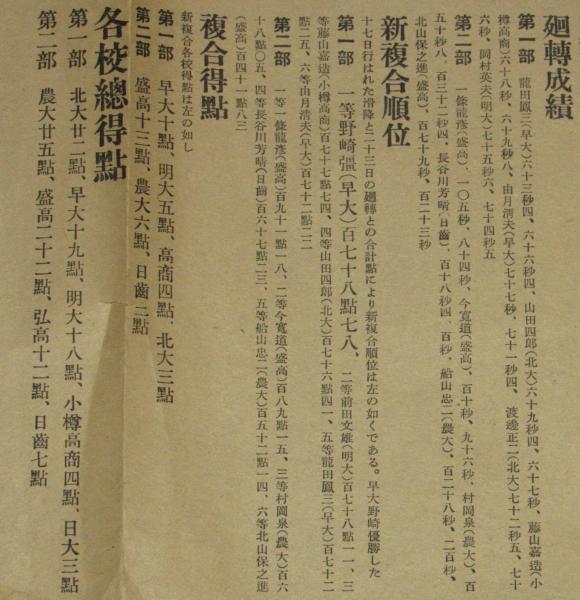 廻轉成績
第一部　龍田鳳三(早大)六十三秒四、六十六秒四、山田四郎(北大)六十九秒四、六十七秒、藤山嘉造(小
樽高商)六十八秒、六十九秒八、由月淸夫(早大)七十七秒、七十一秒四、渡邊正二(北大)七十二秒五、七十
六秒、岡村英夫(明大)七十五秒六、七十四秒五
第二部　一條龍彥(盛高)、一〇五秒、八十四秒、今寬道(盛高)、百十秒、九十六秒、村岡泉(農大)、百
五十秒八、百三十二秒四、長谷川芳晴(日齒)百十八秒四、百秒、船山忠二(農大)、百二十八秒、二百秒、
北山保之進(盛高)、百七十九秒、百二十三秒
新複合順位
十七日行はれた滑降と二十三日の廻轉との合計點により新複合順位は左の如くである。早大野崎優勝した
第一部　一等野崎彊(早大)百七十八點七八、二等前田文雄(明大)百七十八點一一、三
等藤山嘉造(小樽高商)百七十七點七四、四等山田四郎(北大)百七十六點四一、五等龍田鳳三(早大)百七十二
點二五、六等由月淸夫(早大)百七十二點二二
第二部　一等一條龍彥(盛高)百九十一點一八、二等今寬道(盛高)百八九點一五、三等村岡泉(農大)百六
十八點〇五、四等長谷川芳晴(日齒)百六十七點二三、五等船山忠二(農大)百五十二點一四、六等北山保之進
(盛高)百四十一點八三
複合得點
新複合各校得點は左の如し
第一部　早大十點、明大五點、高商四點、北大三點
第二部　盛高十三點、農大六點、日齒二點
各校總得點
第一部　北大廿二點、早大十九點、明大十八點、小樽高商四點、日大三點
第二部　農大廿五點、盛高二十二點、弘高十二點、日齒七點